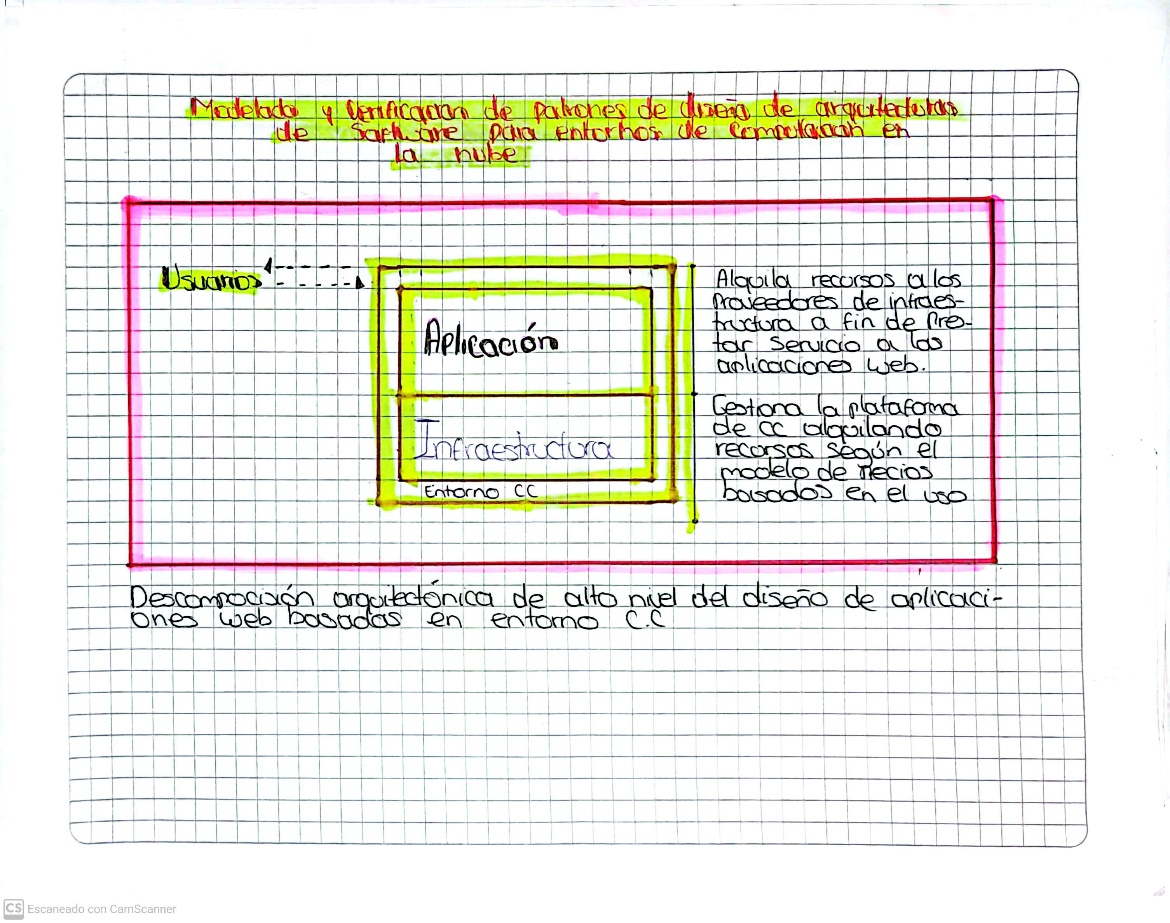 Modelado y Verificación de patrones de diseño de arquitecturas
de Software para entornos de Computación en
la nube
Usuarios
Aplicación
Infraestructura
Entorno CC
Alquila recursos a los
Proveedores de infraes-
tructura a fin de Pres-
tar Servicio a las
aplicaciones web.
Gestiona la plataforma
de CC alquilando
recursos según el
modelo de Precios
basados en el uso
Descomposición arquitectónica de alto nivel del diseño de aplicaci-
ones web basadas en entorno C.C
CS Escaneado con CamScanner